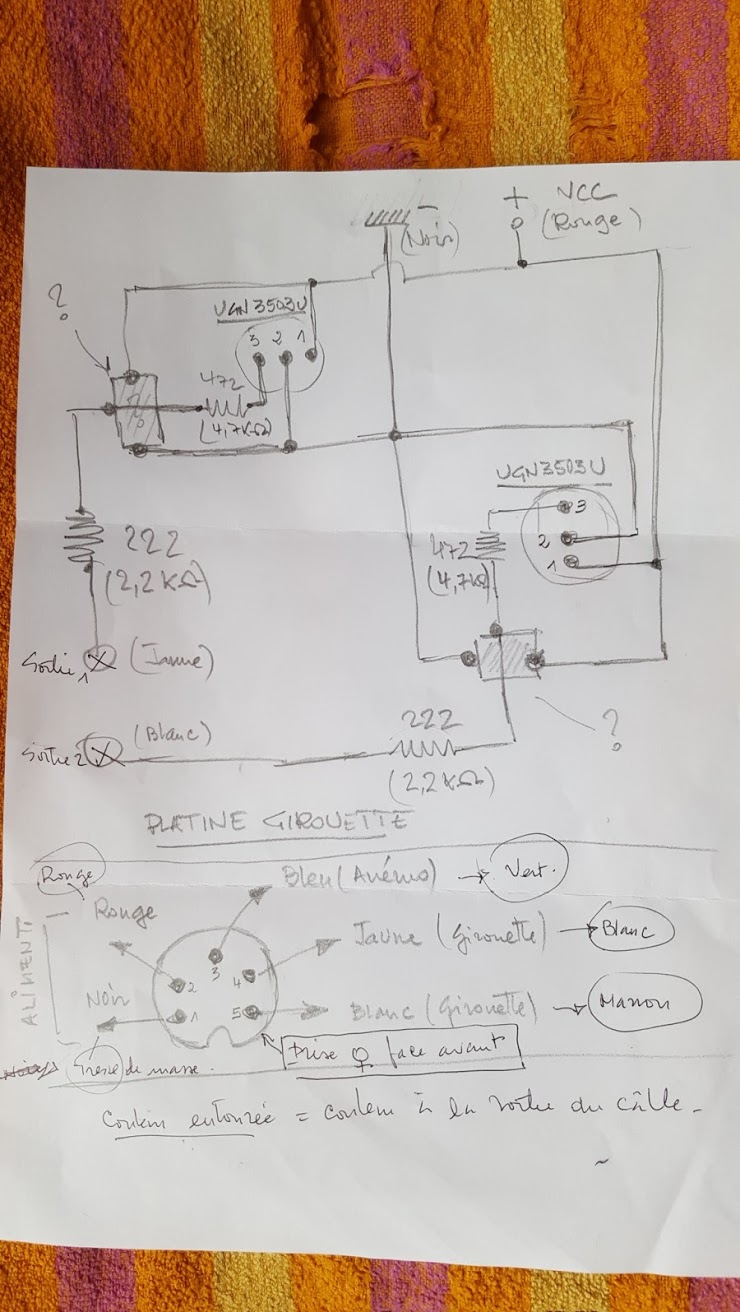 + VCC
- (Noir) (Rouge)
?
UGN3503U
3 2 1
472
(4,7KΩ)
UGN3503U
3
2
1
472
(4,7KΩ)
222
(2,2KΩ)
Sortie 1 (Jaune)
Sortie 2 (Blanc)
222
(2,2KΩ)
?
PLATINE GIROUETTE
Rouge
Bleu (Anémo) → Vert.
Rouge
Jaune (Girouette) → Blanc
3
4
2
ALIMENT
Noir
1
5
Blanc (Girouette) → Marron
Prise ♀ face avant
Tresse de masse.
Couleur entourée = couleur à la sortie du câble.